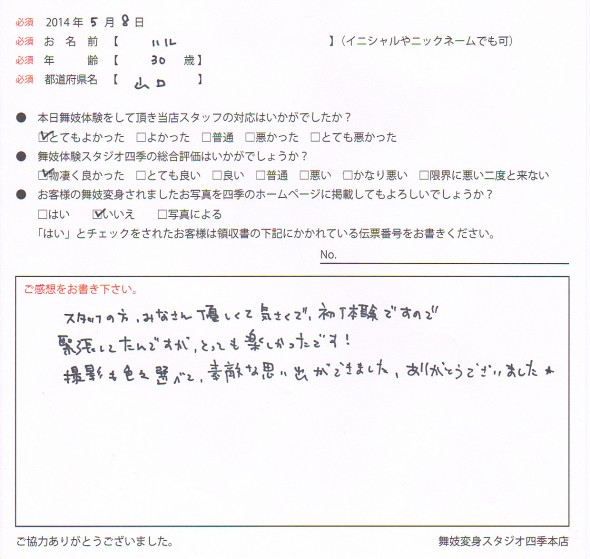 必須 2014年 5月 8日
必須 お 名 前 【 ハル 】(イニシャルやニックネームでも可)
必須 年 齢 【 30 歳】
必須 都道府県名 【 山口 】
● 本日舞妓体験をして頂き当店スタッフの対応はいかがでしたか？
☑とてもよかった □よかった □普通 □悪かった □とても悪かった
● 舞妓体験スタジオ四季の総合評価はいかがでしょうか？
☑物凄く良かった □とても良い □良い □普通 □悪い □かなり悪い □限界に悪い二度と来ない
● お客様の舞妓変身されましたお写真を四季のホームページに掲載してもよろしいでしょうか？
□はい ☑いいえ □写真による
「はい」とチェックをされたお客様は領収書の下記にかかれている伝票番号をお書きください。
No.
ご感想をお書き下さい。
スタッフの方、みなさん優しくて気さくで、初体験ですので
緊張してたんですが、とっても楽しかったです！
撮影も色々選べて、素敵な思い出ができました、ありがとうございました☆
ご協力ありがとうございました。
舞妓変身スタジオ四季本店